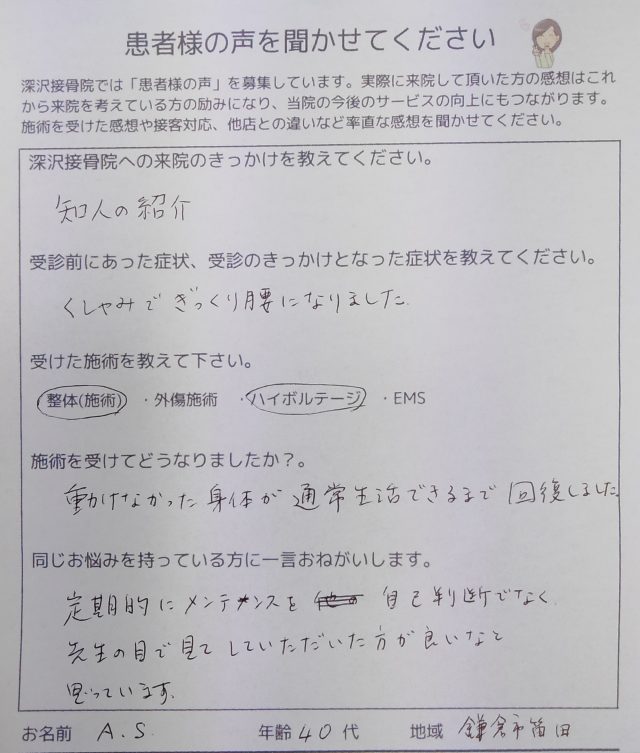 患者様の声を聞かせてください
深沢接骨院では「患者様の声」を募集しています。実際に来院して頂いた方の感想はこれ
から来院を考えている方の励みになり、当院の今後のサービスの向上にもつながります。
施術を受けた感想や接客対応、他店との違いなど率直な感想を聞かせてください。
深沢接骨院への来院のきっかけを教えてください。
知人の紹介
受診前にあった症状、受診のきっかけとなった症状を教えてください。
くしゃみでぎっくり腰になりました.
受けた施術を教えて下さい。
整体(施術) ・外傷施術 ・ハイボルテージ ・EMS
施術を受けてどうなりましたか？。
動けなかった身体が通常生活できるまで回復しました
同じお悩みを持っている方に一言おねがいします。
定期的にメンテナンスを 自己判断でなく
先生の目で見てしていただいた方が良いなと
思っています.
お名前 A.S. 年齢 40代 地域 鎌倉市笛田